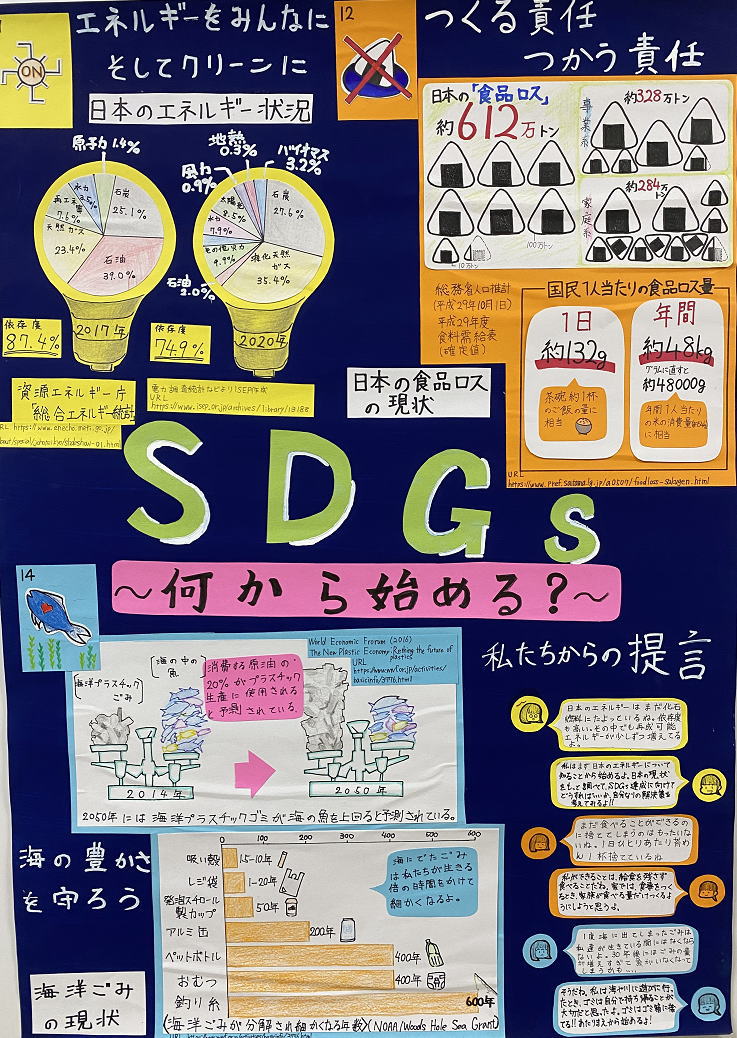 エネルギーをみんなに
そしてクリーンに
ON
日本のエネルギー状況
原子力 1.4%
石炭
25.1%
水力
3.5%
再エネ等
7.6%
天然ガス
23.4%
石油
39.0%
2017年
依存度
87.4%
地熱
0.3%
バイオマス
3.2%
風力
0.9%
太陽光
8.5%
水力
7.9%
その他火力
9.9%
石油
2.0%
石炭
27.6%
液化天然
ガス
35.4%
2020年
依存度
74.9%
資源エネルギー庁
「総合エネルギー統計」
電力調査統計などよりISEP作成
URL
https://www.isep.or.jp/archives/library/13188
12
つくる責任
つかう責任
日本の「食品ロス」
約612万トン
10万トン
100万トン
事業系
約328万トン
家庭系
約284万トン
総務省人口推計
(平成29年10月1日)
平成29年度
食料需給表
(確定値)
国民1人当たりの食品ロス量
1日
約132g
茶碗約1杯
のご飯の量に
相当
年間
約48kg
グラムに直すと
約48000g
年間1人当たり
の米の消費量(約54kg)
に相当
URL
日本の食品ロス
の現状
SDGs
～何から始める?～
14
World Economic Frorum (2016)
The New Plastic Economy:Rething the future of
plastics
URL
海洋プラスチック
ごみ
海の中の
魚
消費する原油の
20%がプラスチック
生産に使用される
と予測されている。
2014年
2050年
2050年には海洋プラスチックゴミが海の魚を上回ると予測されている。
海の豊かさ
を守ろう
海洋ごみ
の現状
0 100 200 300 400 500 600
吸い殻 1.5-10年
レジ袋 1-20年
発泡スチロール
製カップ 50年
アルミ缶 200年
ペットボトル 400年
おむつ 400年
釣り糸 600年
海にでたごみ
は私たちが生きる
倍の時間をかけて
細かくなるよ。
(海洋ごみが分解され細かくなる年数)(NOAA/Woods Hole Sea Grant)
私たちからの提言
日本のエネルギーはまだ化石
燃料にたよっているね。依存度
も高い。その中でも再成可能
エネルギーが少しずつ増えてる
よ。
私はまず日本のエネルギーについて
知ることから始めるよ。日本の現状
をもっと調べて、SDGs達成に向けて
どうすればいいか、自分なりの解決策を
考えてみるよ!!
まだ食べることができるの
に捨ててしまうのはもったいな
いね。1日ひとりあたり茶わ
ん1杯捨てているね
私ができることは、給食を残さず
食べることだね。家では、食事をつく
るとき、家族が食べる量だけつくるよ
うにしようと思うよ。
1度海に出てしまったごみは
私達が生きている間にはなくなら
ないよ。30年後にはごみの量
が増えすぎて魚がいなくなって
しまうかも...
そうだね。私は海や川に遊びに行っ
たとき、ゴミは自分で持ち帰ることが
大切だと思ったよ。ゴミはゴミ箱に捨
てる!!あたりまえから始めるよ!